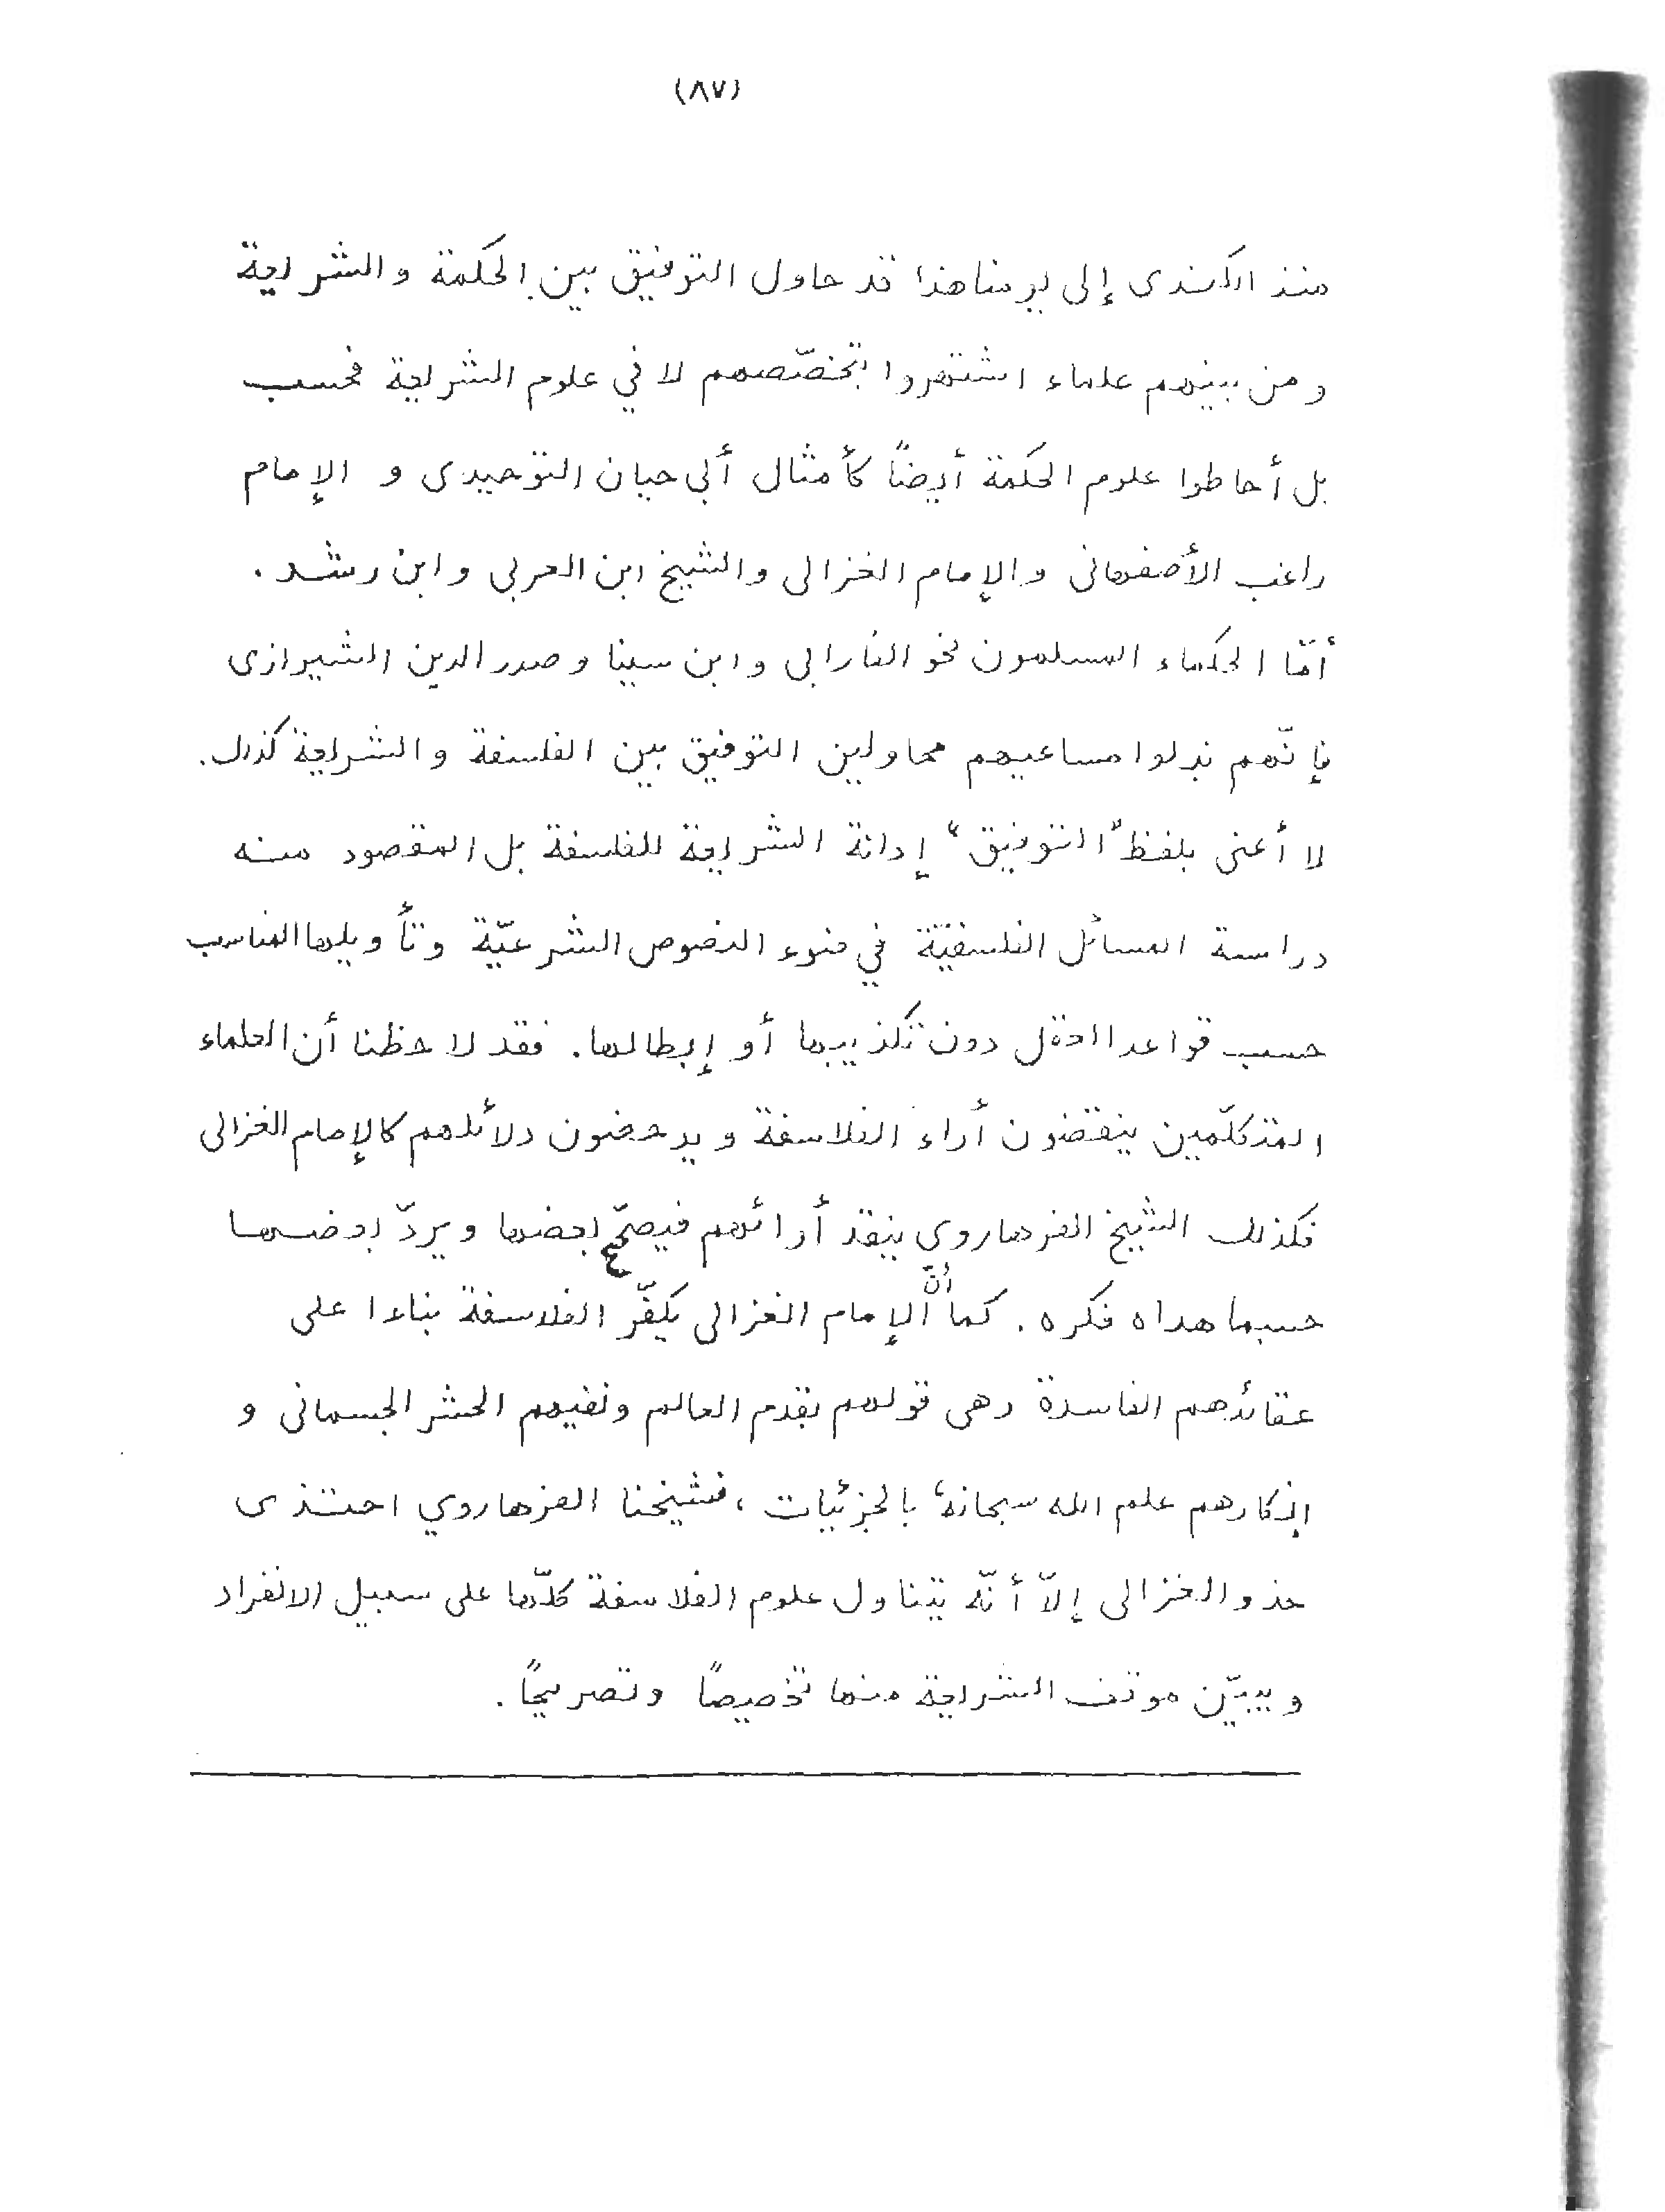 (٨٧)
منذ الكندى إلى يومنا هذا قد حاول التوفيق بين الحكمة والشريعة
ومن بينهم علماء اشتهروا بتخصّصهم لا في علوم الشريعة فحسب
بل أحاطوا علوم الحكمة أيضاً كأمثال أبى حيان التوحيدى و الإمام
راغب الأصفهانى والإمام الغزالى والشيخ ابن العربى وابن رشد .
أمّا الحكماء المسلمون نحو الفارابى وابن سينا وصدر الدين الشيرازى
فإنّهم بذلوا مساعيهم محاولين التوفيق بين الفلسفة والشريعة كذلك.
لا أعنى بلفظ "التوفيق" إدانة الشريعة للفلسفة بل المقصود منه
دراسة المسائل الفلسفيّة في ضوء النصوص الشرعيّة وتأويلها المناسب
حسب قواعد العقل دون تكذيبها أو إبطالها. فقد لاحظنا أن العلماء
المتكلّمين ينقضون أراء الفلاسفة ويدحضون دلائلهم كالإمام الغزالى
فكذلك الشيخ الفرهاروي ينقد أرائهم فيصحّح بعضها ويردّ بعضها
حسبما هداه فكره . كما أنّ الإمام الغزالى يكفّر الفلاسفة بناءا على
عقائدهم الفاسدة وهى قولهم بقدم العالم ونفيهم الحشر الجسمانى و
إنكارهم علم الله سبحانهٗ بالجزئيات ، فشيخنا الفرهاروي احتذى
حذو الغزالى إلاّ أنّه يتناول علوم الفلاسفة كلّها على سبيل الانفراد
ويبيّن موقف الشريعة منها تخصيصاً وتصريحاً .